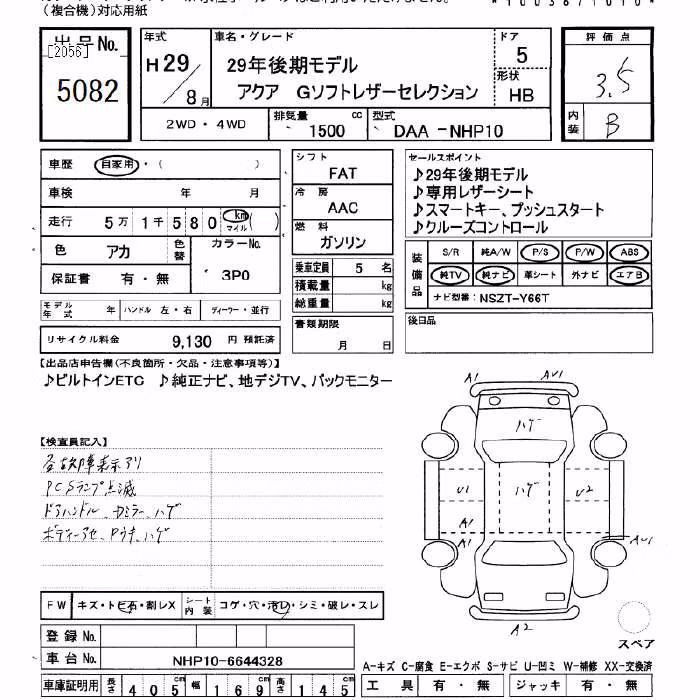 （複合機）対応用紙
出品No.
[2056]
5082
年式
H 29／8月
車名・グレード
29年後期モデル
アクア Gソフトレザーセレクション
ドア
5
形状
HB
評価点
3.5
内装
B
2WD・4WD
排気量
1500 cc
型式
DAA-NHP10
車歴 自家用・（ ）
車検 年 月
走行 5万1千580 km マイル ( )
色 アカ 色替 カラーNo. 3P0
保証書 有・無
モデル年式 年 ハンドル 左・右 ディーラー・並行
リサイクル料金 9,130 円 預託済
シフト
FAT
冷房
AAC
燃料
ガソリン
乗車定員 5 名
積載量 kg
総重量 kg
書類期限
月 日
セールスポイント
♪29年後期モデル
♪専用レザーシート
♪スマートキー、プッシュスタート
♪クルーズコントロール
装備品
S/R 純A/W P/S P/W ABS
純TV 純ナビ 革シート 外ナビ エアB
ナビ型番: NSZT-Y66T
後日品
【出品店申告欄(不良箇所・欠品・注意事項等)】
♪ビルトインETC ♪純正ナビ、地デジTV、バックモニター
【検査員記入】
各故障表示アリ
PCSランプ点滅
ドアハンドル、Dミラー、ハゲ
ボディーアセ、Pウキ、ハゲ
A1 AU1
ハゲ
U1 ハゲ U2
A1
A1 AU1
A2
スペア
FW キズ・トビ石・割レX シート内装 コゲ・穴・汚レ・シミ・破レ・スレ
登録No.
車台No. NHP10-6644328
車庫証明用 長さ 405 cm 幅 169 cm 高さ 145 cm
A-キズ C-腐食 E-エクボ S-サビ U-凹ミ W-補修 XX-交換済
工具 有・無 ジャッキ 有・無